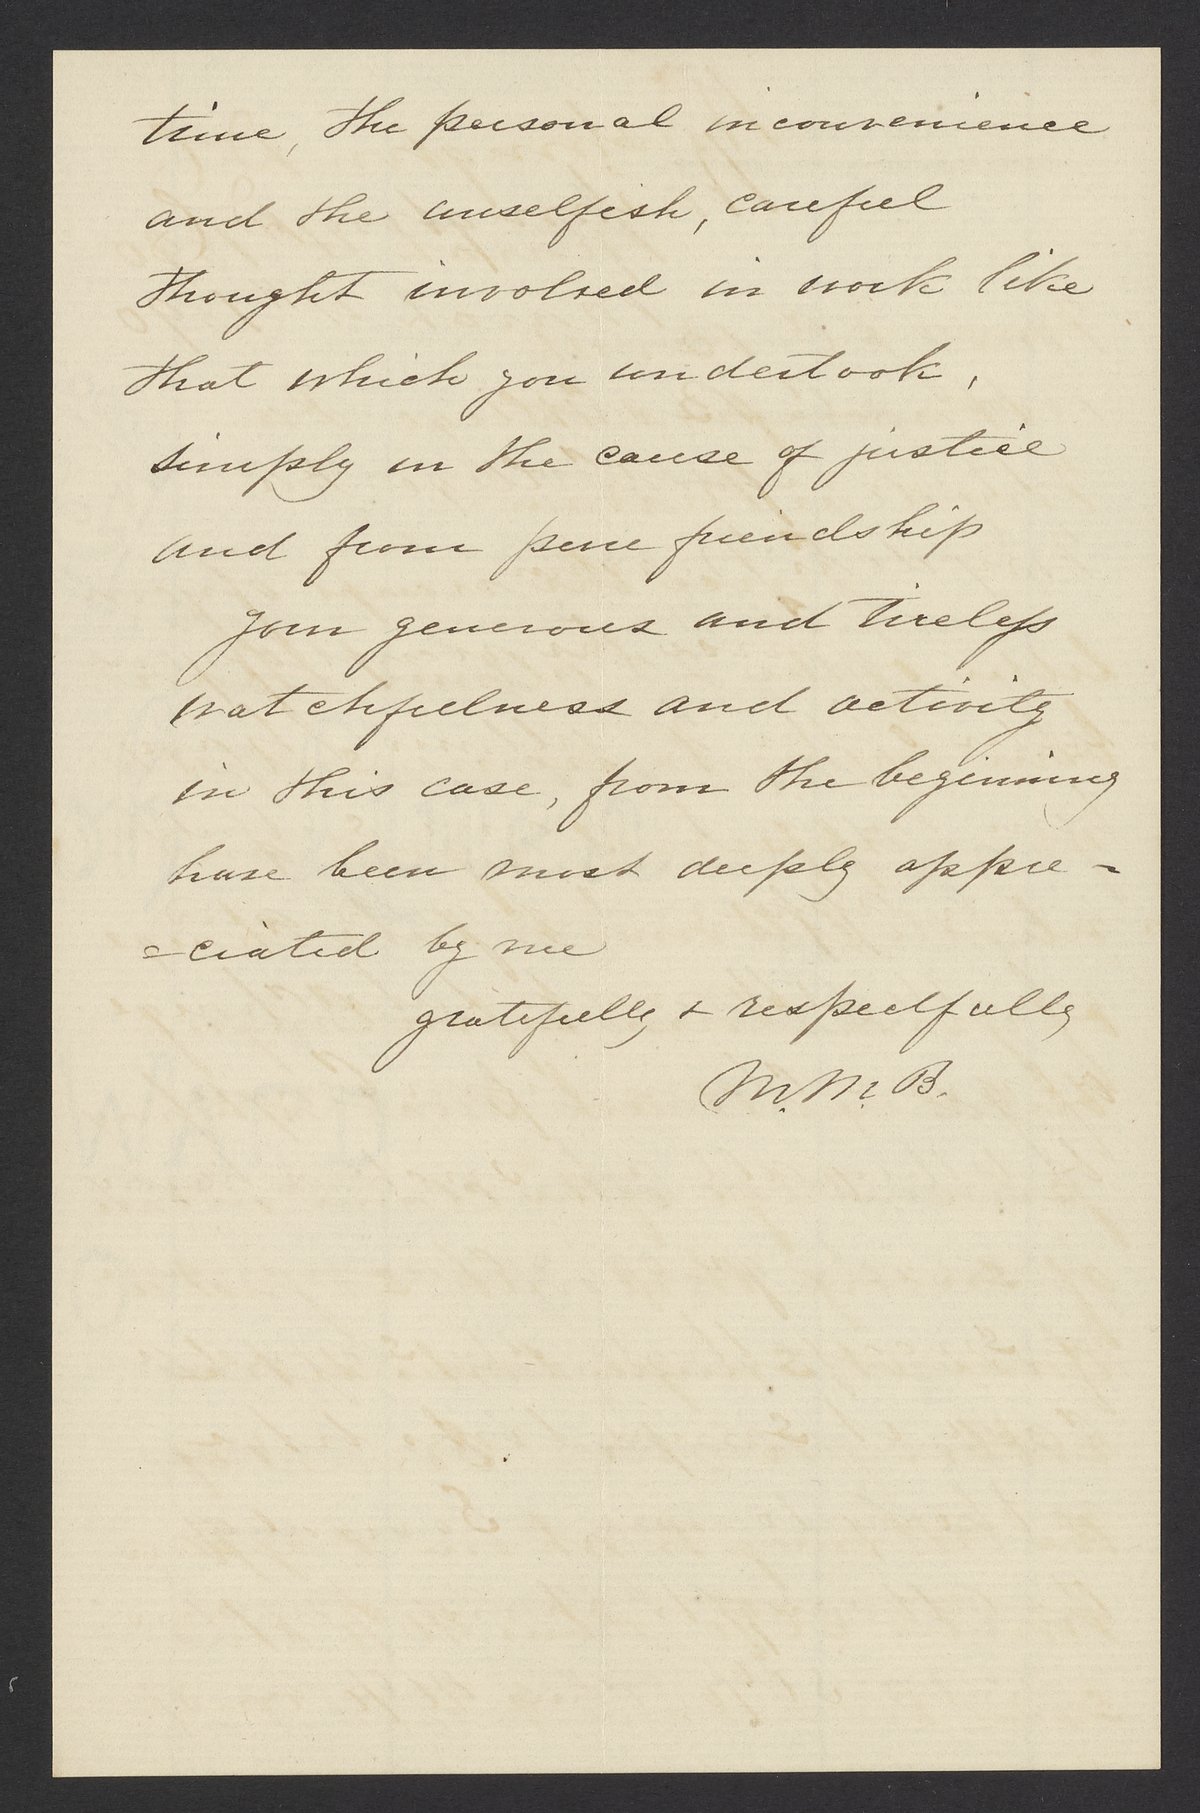 time, the personal inconvenience
and the unselfish, careful
thought involved in work like
that which you undertook,
simply in the cause of justice
and from pure friendship
your generous and tireless
watchfulness and activity
in this case, from the beginning
have been most deeply appre-
=ciated by me
gratefully & respectfully
M. M. B.